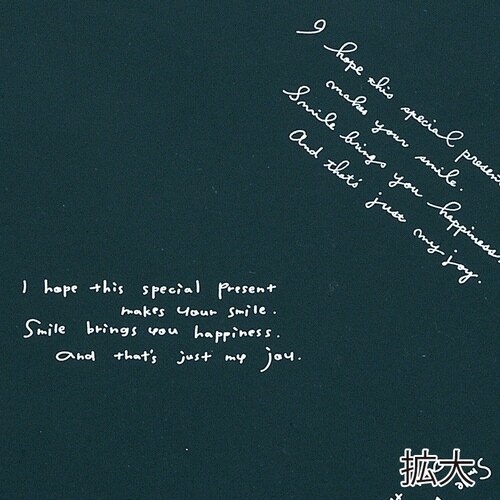 I hope this special present
makes your smile.
Smile brings you happiness.
And that's just my joy.
I hope this special present
makes your smile.
Smile brings you happiness.
and that's just my joy.
拡大